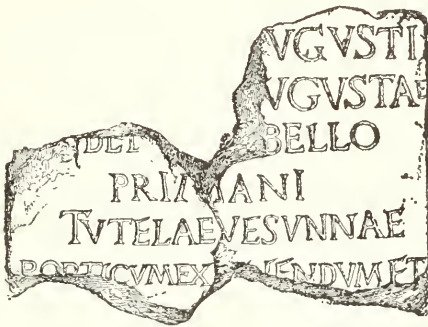 VGVSTI
VGVSTAE
DEI BELLO
PRIMANI
TVTELAE VESVNNAE
PORTICVM EX IENDVM ET